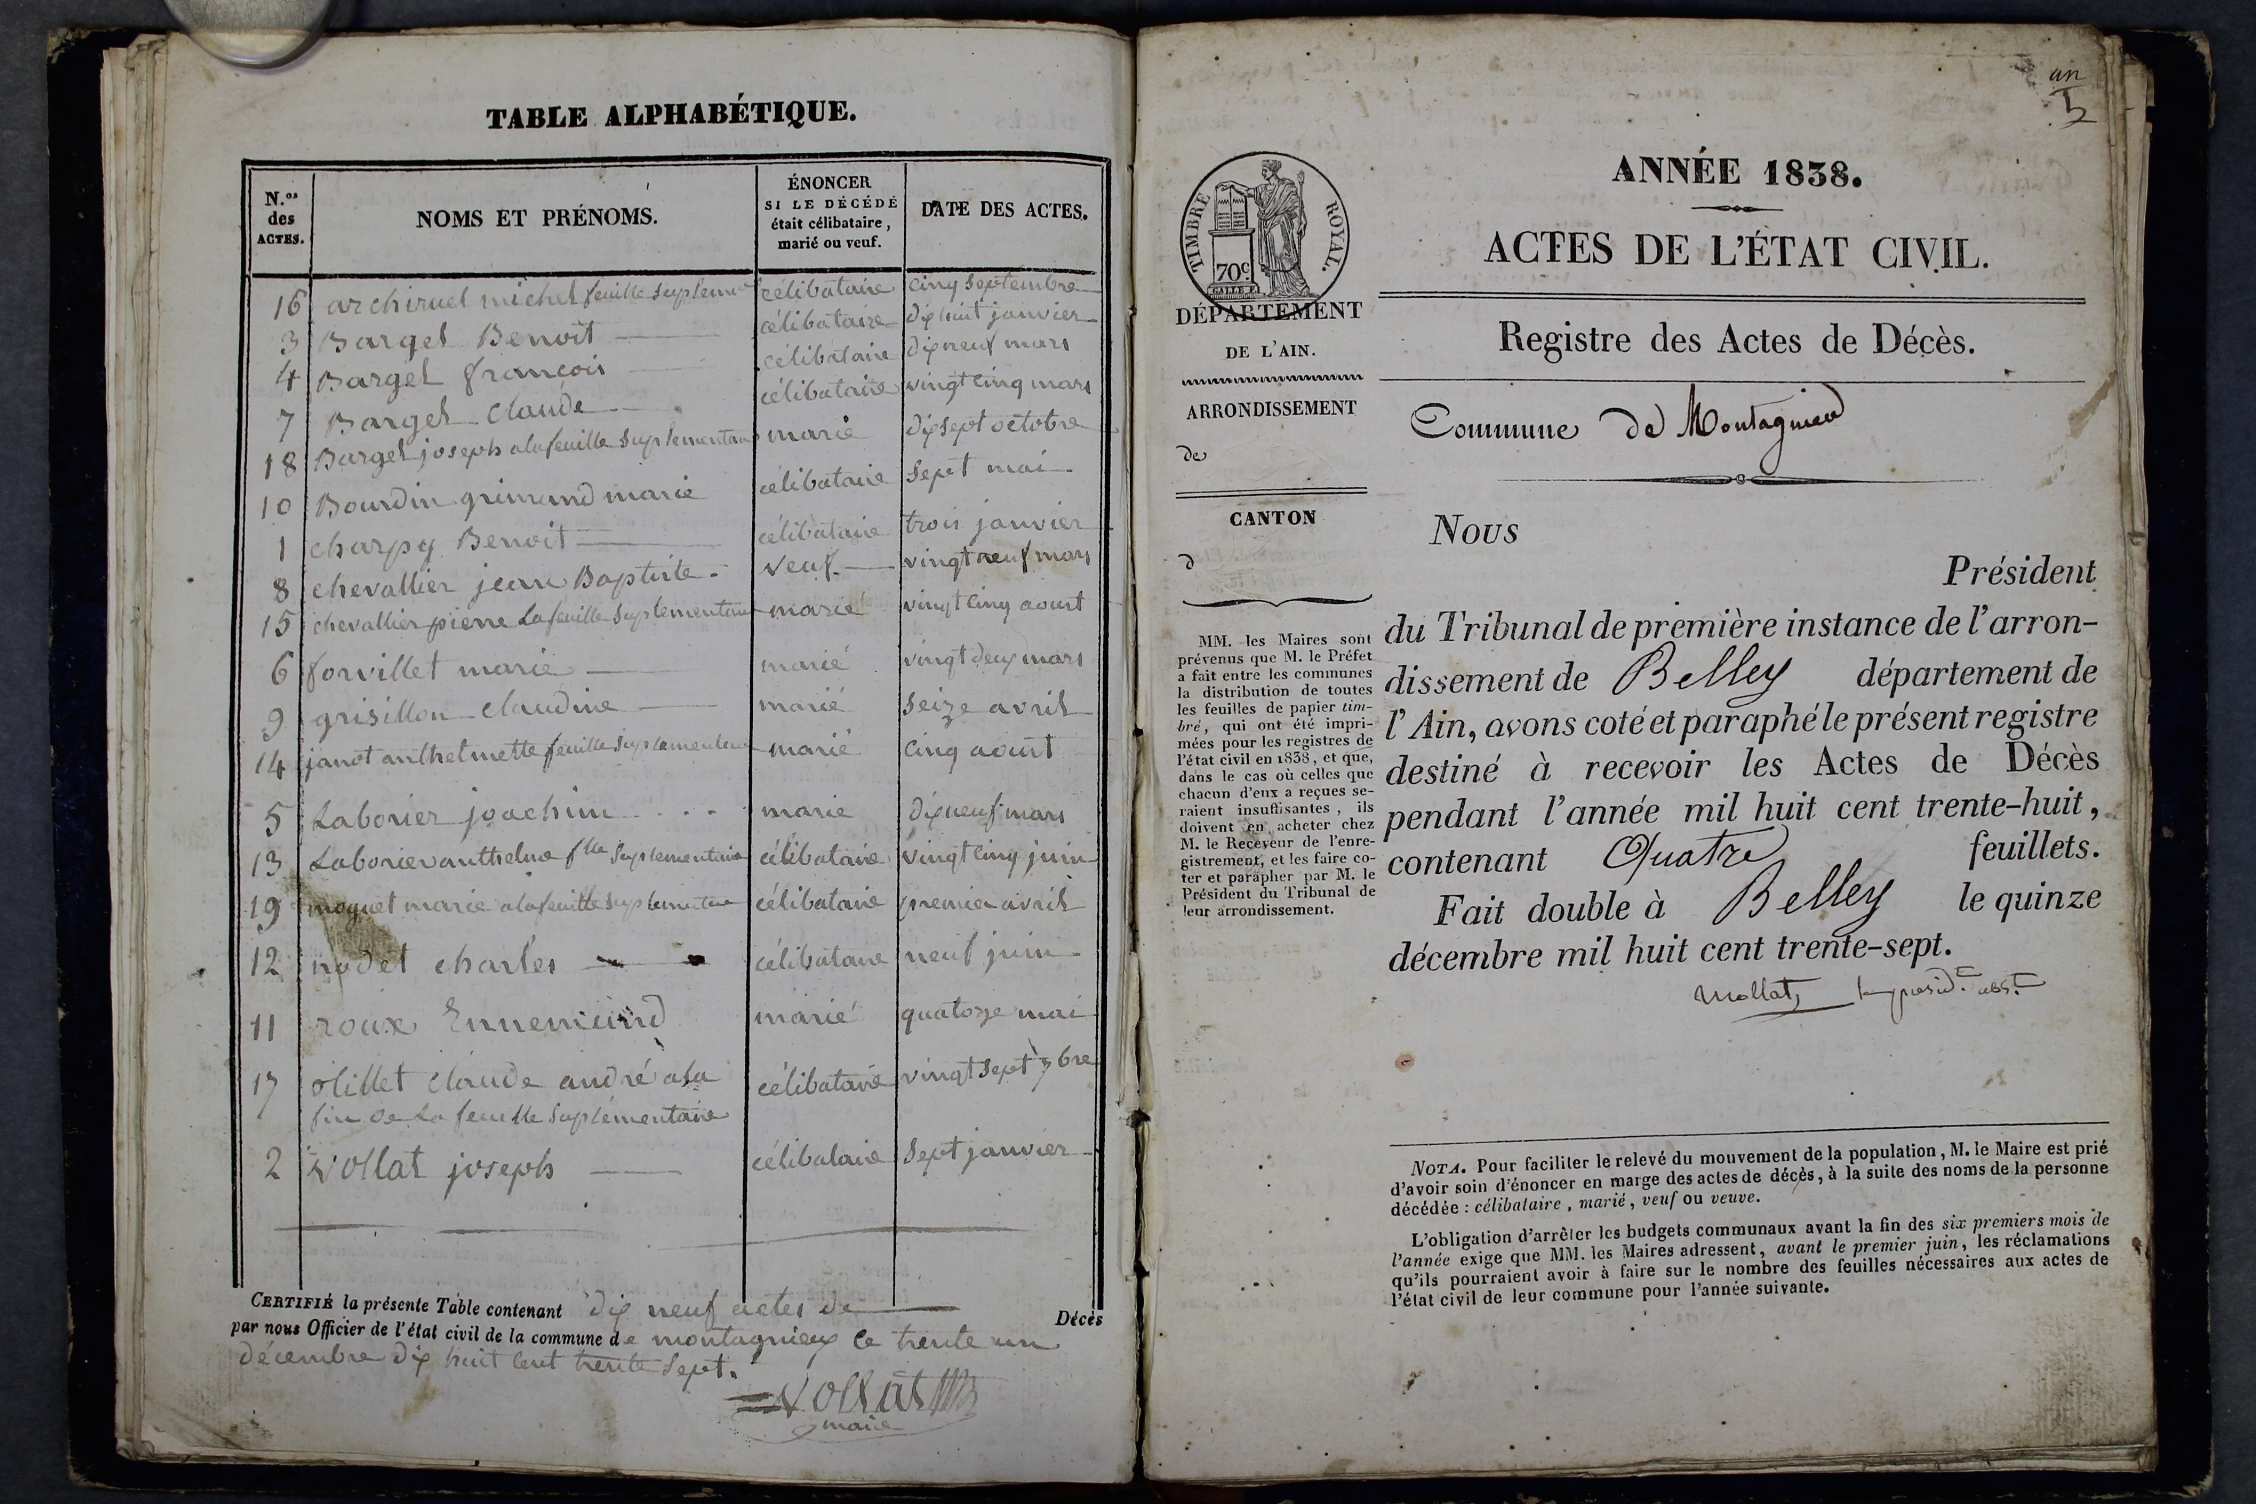 TABLE ALPHABÉTIQUE.
N.os des ACTES.
NOMS ET PRÉNOMS.
ÉNONCER
SI LE DÉCÉDÉ
était célibataire,
marié ou veuf.
DATE DES ACTES.
16 archiruel michel feuille suplem célibataire cinq septembre
3 Barget Benoit célibataire dix huit janvier
4 Barget françois célibataire dix neuf mars
7 Barget claude célibataire vingt cinq mars
18 Barget joseph a la feuille suplementaire marié dix sept octobre
10 Bourdin grimand marie célibataire sept mai
1 charpy Benoit célibataire trois janvier
8 chevallier jean Baptiste veuf vingt neuf mars
15 chevallier pierre La feuille suplementaire marié vingt cinq aoust
6 forvillet marie marié vingt deux mars
9 grisillon claudine marié seize avril
14 janot anthelmette feuille suplementaire marié cinq aoust
5 Laborier joachim marie dix neuf mars
13 Laborier anthelme flle suplementaire célibataire vingt cinq juin
19 moquet marie a la feuille suplementaire célibataire premier avril
12 nodet charles célibataire neuf juin
11 roux Ennemund marié quatorze mai
17 olillet claude andré a la célibataire vingt sept 7bre
fin de La feuille suplémentaire
2 vollat joseph célibataire sept janvier
CERTIFIÉ la présente Table contenant dix neuf actes de Décès
par nous Officier de l'état civil de la commune de montagnieux ce trente un
décembre dix huit cent trente sept.
vollat
maire
un
ANNÉE 1838.
ACTES DE L'ÉTAT CIVIL.
Registre des Actes de Décès.
Commune de Montagnieu
TIMBRE ROYAL.
70c
DÉPARTEMENT
DE L'AIN.
ARRONDISSEMENT
de
CANTON
d
MM. les Maires sont
prévenus que M. le Préfet
a fait entre les communes
la distribution de toutes
les feuilles de papier tim-
bré, qui ont été impri-
mées pour les registres de
l'état civil en 1838, et que,
dans le cas où celles que
chacun d'eux a reçues se-
raient insuffisantes, ils
doivent en acheter chez
M. le Receveur de l'enre-
gistrement, et les faire co-
ter et parapher par M. le
Président du Tribunal de
leur arrondissement.
Nous
Président
du Tribunal de première instance de l'arron-
dissement de Belley département de
l'Ain, avons coté et paraphé le présent registre
destiné à recevoir les Actes de Décès
pendant l'année mil huit cent trente-huit,
contenant Quatre feuillets.
Fait double à Belley le quinze
décembre mil huit cent trente-sept.
Mollat
NOTA. Pour faciliter le relevé du mouvement de la population, M. le Maire est prié
d'avoir soin d'énoncer en marge des actes de décès, à la suite des noms de la personne
décédée : célibataire, marié, veuf ou veuve.
L'obligation d'arrêter les budgets communaux avant la fin des six premiers mois de
l'année exige que MM. les Maires adressent, avant le premier juin, les réclamations
qu'ils pourraient avoir à faire sur le nombre des feuilles nécessaires aux actes de
l'état civil de leur commune pour l'année suivante.